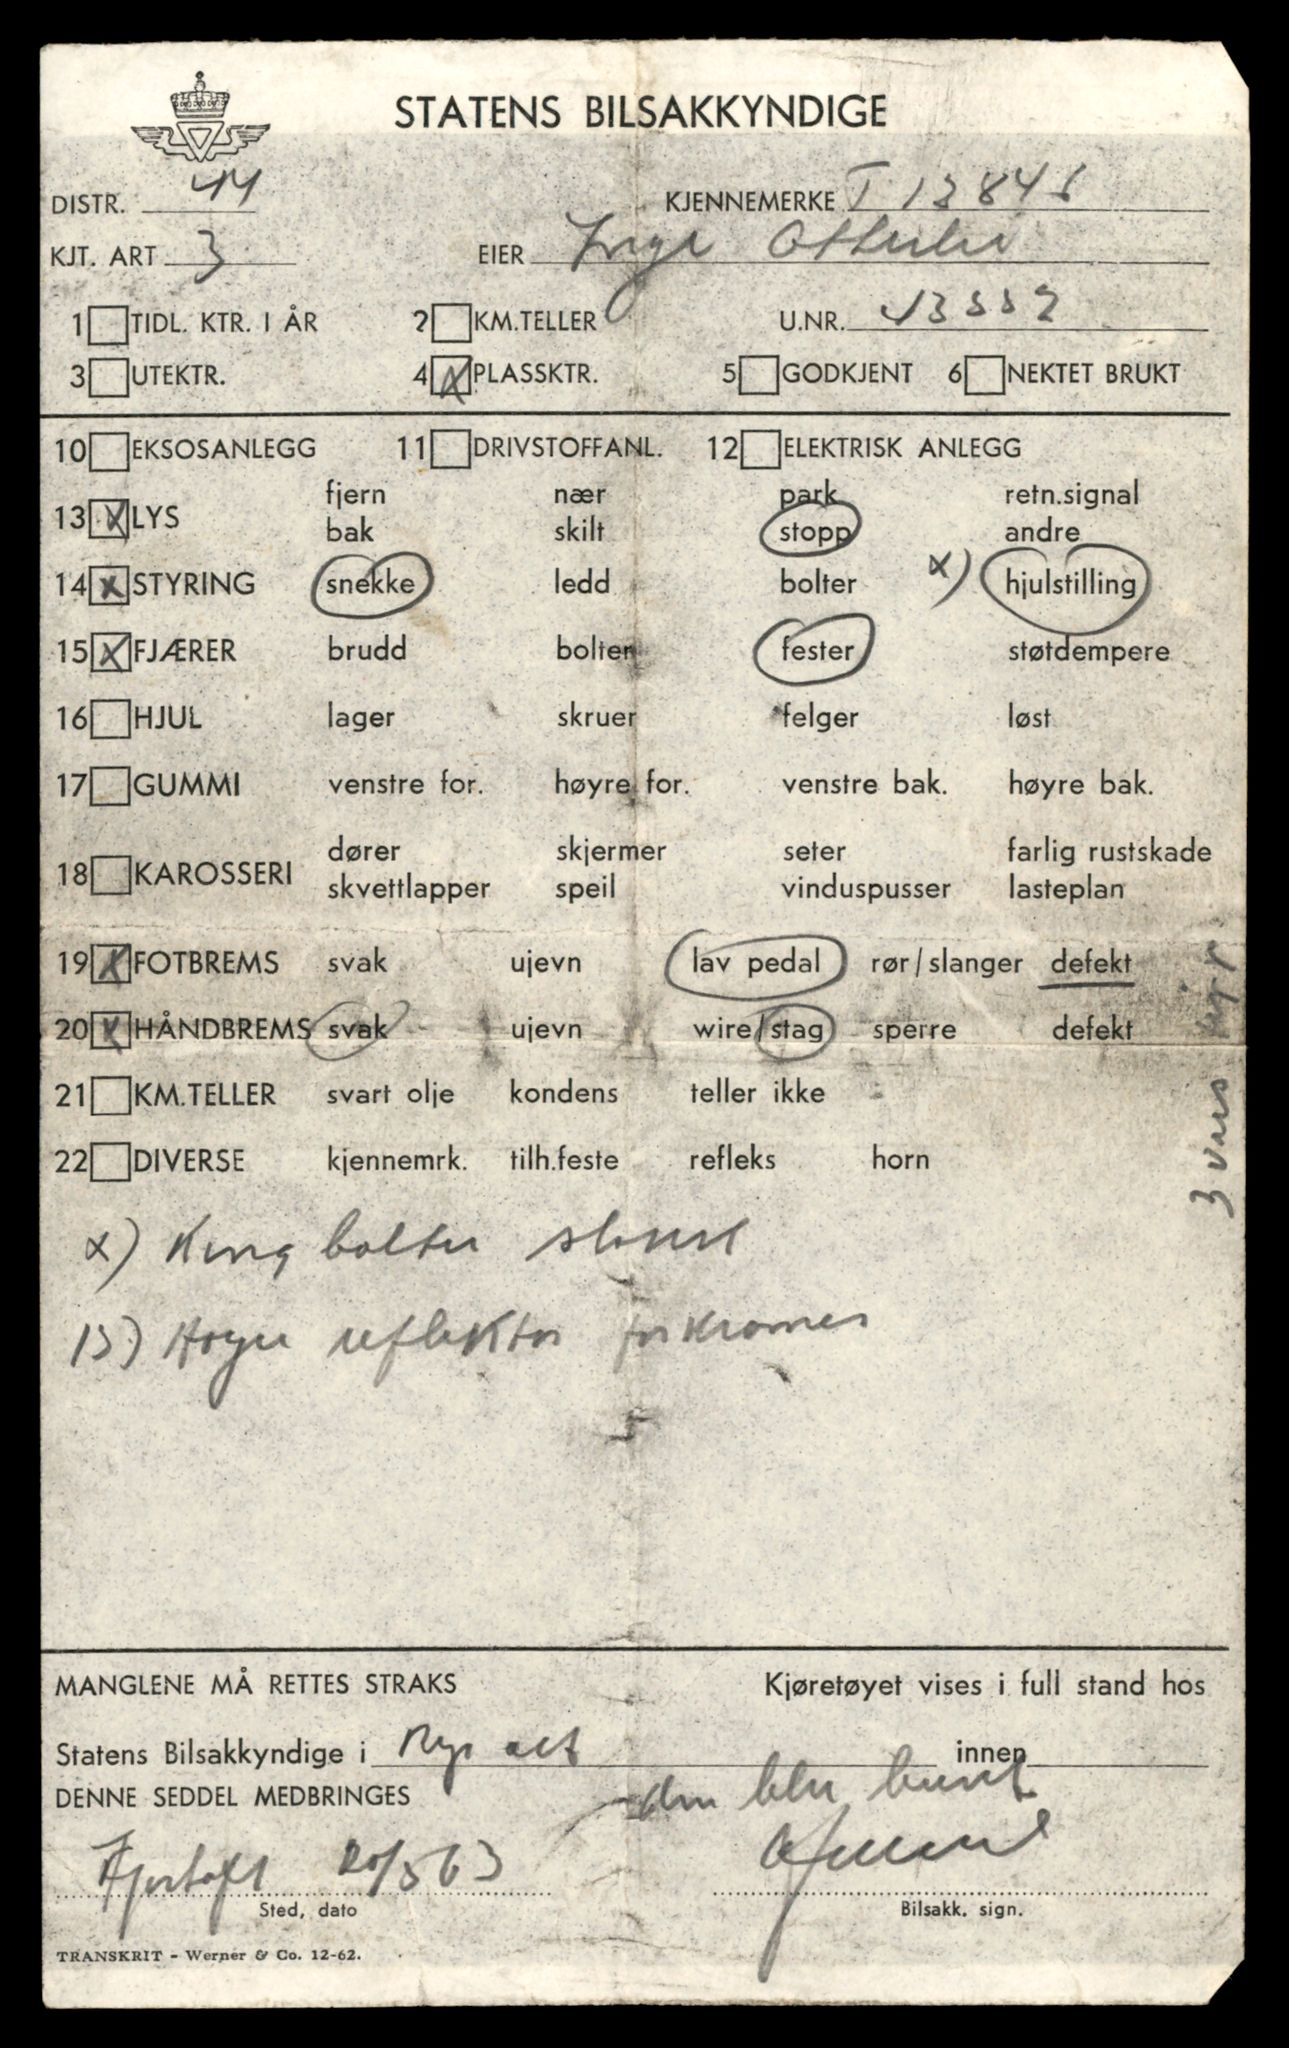 STATENS BILSAKKYNDIGE
DISTR. 44 KJENNEMERKE T 13846
KJT. ART 3 EIER Inge Otterlei
1 TIDL. KTR. I ÅR 2 KM.TELLER U.NR. 13332
3 UTEKTR. 4 X PLASSKTR. 5 GODKJENT 6 NEKTET BRUKT
10 EKSOSANLEGG 11 DRIVSTOFFANL. 12 ELEKTRISK ANLEGG
fjern nær park retn.signal
13 X LYS
bak skilt stopp andre
14 X STYRING snekke ledd bolter x) hjulstilling
15 X FJÆRER brudd bolter fester støtdempere
16 HJUL lager skruer felger løst
17 GUMMI venstre for. høyre for. venstre bak. høyre bak.
dører skjermer seter farlig rustskade
18 KAROSSERI
skvettlapper speil vinduspusser lasteplan
19 X FOTBREMS svak ujevn lav pedal rør/slanger defekt
20 X HÅNDBREMS svak ujevn wire/stag sperre defekt
21 KM.TELLER svart olje kondens teller ikke
22 DIVERSE kjennemrk. tilh.feste refleks horn
3 vers
x) King bolter slark
13) Høgre reflektor forkromes
MANGLENE MÅ RETTES STRAKS Kjøretøyet vises i full stand hos
Statens Bilsakkyndige i innen
DENNE SEDDEL MEDBRINGES den blir brukt
Fjørtoft 20/5 63
Sted, dato Bilsakk. sign.
TRANSKRIT - Werner & Co. 12-62.